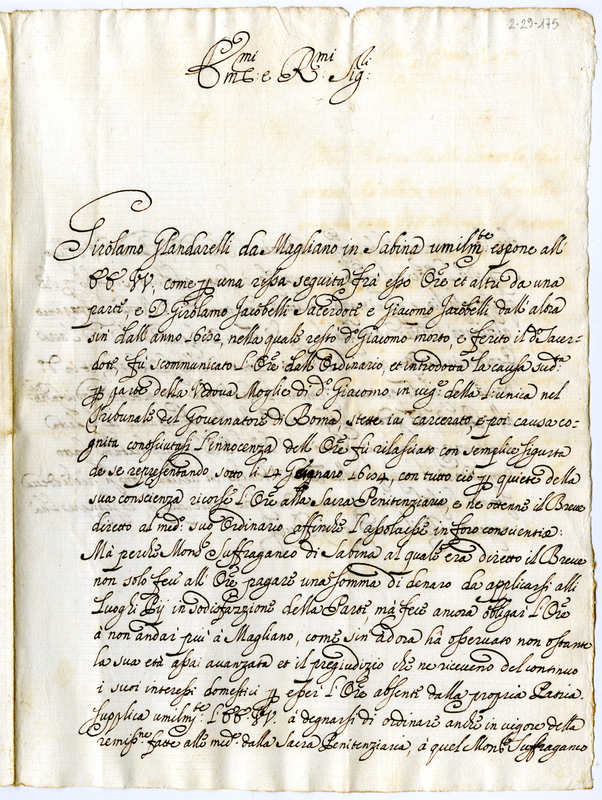 2-29-175
Emi: e Rmi: Sigli:
Girolamo Glandarelli da Magliano in Sabina umilmte: espone all'
EE. VV. come p una rissa seguita frà esso Ore et altri da una
parte, e D. Girolamo Jacobelli Sacerdote e Giacomo Jacobelli dall'altra
sin dall'anno 1692, nella quale restò do: Giacomo morto, e ferito il do Sacer-
dote fù scommunicato l'Ore: dall'Ordinario, et introdotta la causa suda:
p parte della Vedova Moglie di do: Giacomo in vigo: della Lunica nel
Tribunale del Governatore di Roma stette ivi carcerato e poi causa co-
gnita conosciutasi l'innocenza dell'Ore fù rilasciato con semplice sigurtà
de se representando sotto li 14 Gennaro 1694, con tutto ciò p quiete della
sua conscienza ricorse l'Ore alla Sacra Penitenziaria, e ne ottenne il Breve
diretto al medo: suo Ordinario affinche l'assolvesse in foro conscientiæ:
Mà perche Monse: Suffraganeo di Sabina al quale era diretto il Breve
non solo fece all'Ore pagare una somma di denaro da applicarsi alli
Luoghi Pij in sodisfazzione della Parte, mà fece ancora obligar l'Ore
à non andar più à Magliano, come sin adora hà osservato non ostante
la sua età assai avanzata et il pregiudizio che ne ricevono del continuo
i suoi interessi domestici p esser l'Ore absente dalla propria Patria.
Supplica umilmte: l'EE. VV. à degnarsi di ordinare anche in vigore della
remissne: fatta alle mede: dalla Sacra Penitenziaria, à quel Monse: Suffraganeo